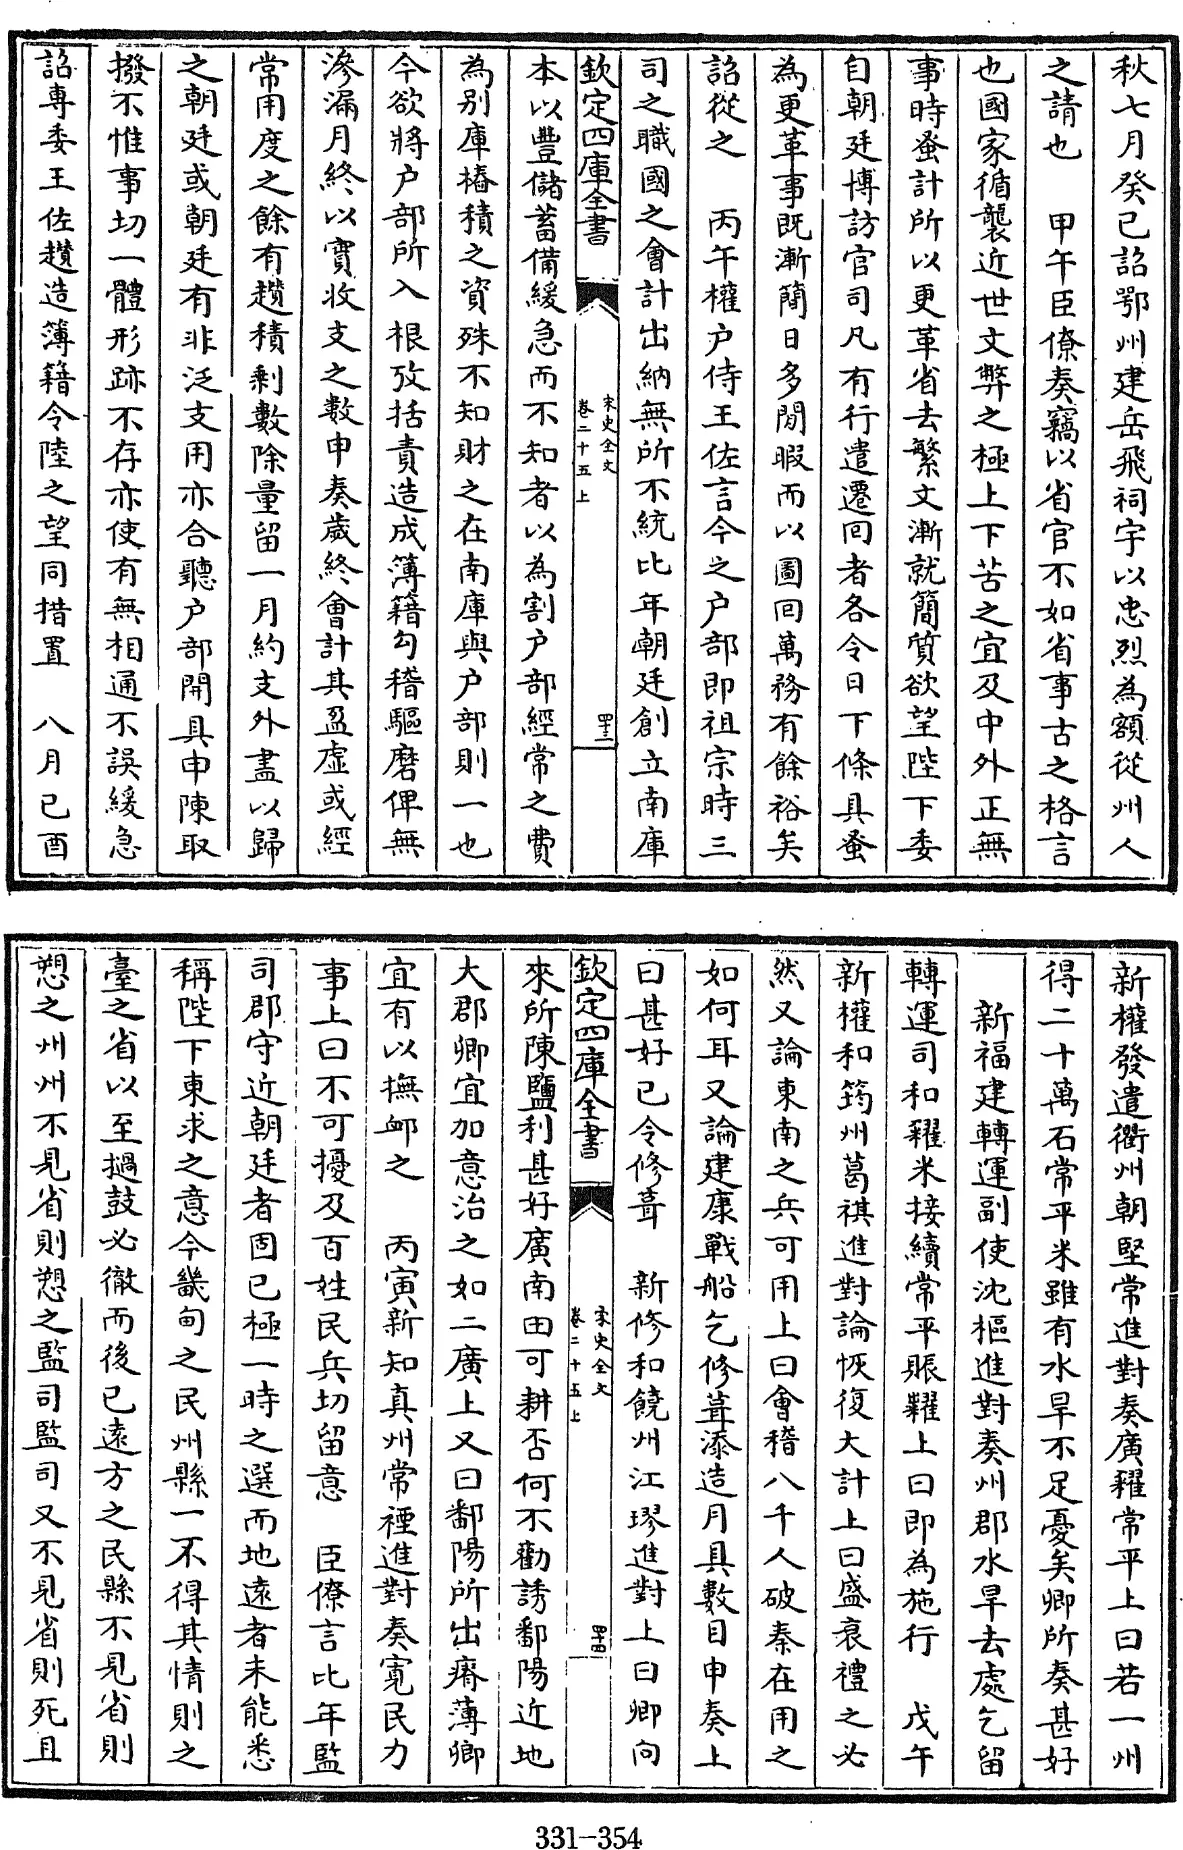 秋七月癸巳詔鄂州建岳飛祠宇以忠烈為額從州人
之請也　甲午臣僚奏竊以省官不如省事古之格言
也國家循襲近世文弊之極上下苦之宜及中外正無
事時蚤計所以更革省去繁文漸就簡質欲望陛下委
自朝廷博訪官司凡有行遣遷回者各令日下條具蚤
為更革事既漸簡日多閒暇而以圖回萬務有餘裕矣
詔從之　丙午權户侍王佐言今之户部即祖宗時三
司之職國之會計出納無所不統比年朝廷創立南庫
欽定四庫全書
宋史全文
卷二十五上
四十三
本以豐儲蓄備緩急而不知者以為割户部經常之費
為别庫樁積之資殊不知財之在南庫與户部則一也
今欲將户部所入根攷括責造成簿籍勾稽驅磨俾無
滲漏月終以實收支之數申奏歲終會計其盈虛或經
常用度之餘有趲積剩數除量留一月約支外盡以歸
之朝廷或朝廷有非泛支用亦合聽户部開具申陳取
撥不惟事切一體形跡不存亦使有無相通不誤緩急
詔專委王佐趲造簿籍令陸之望同措置　八月己酉
新權發遣衢州朝堅常進對奏廣糴常平上曰若一州
得二十萬石常平米雖有水旱不足憂矣卿所奏甚好
新福建轉運副使沈樞進對奏州郡水旱去處乞留
轉運司和糴米接續常平賑糶上曰即為施行　戊午
新權知筠州葛祺進對論恢復大計上曰盛衰禮之必
然又論東南之兵可用上曰會稽八千人破秦在用之
如何耳又論建康戰船乞修葺添造月具數目申奏上
曰甚好已令修葺　新修和饒州江璆進對上曰卿向
欽定四庫全書
宋史全文
卷二十五上
四十四
來所陳鹽利甚好廣南田可耕否何不勸誘鄱陽近地
大郡卿宜加意治之如二廣上又曰鄱陽所出瘠薄卿
宜有以撫卹之　丙寅新知真州常禋進對奏寬民力
事上曰不可擾及百姓民兵切留意　臣僚言比年監
司郡守近朝廷者固已極一時之選而地遠者未能悉
稱陛下東求之意今畿甸之民州縣一不得其情則之
臺之省以至撾鼓必徹而後已遠方之民縣不見省則
愬之州州不見省則愬之監司監司又不見省則死且
331-354